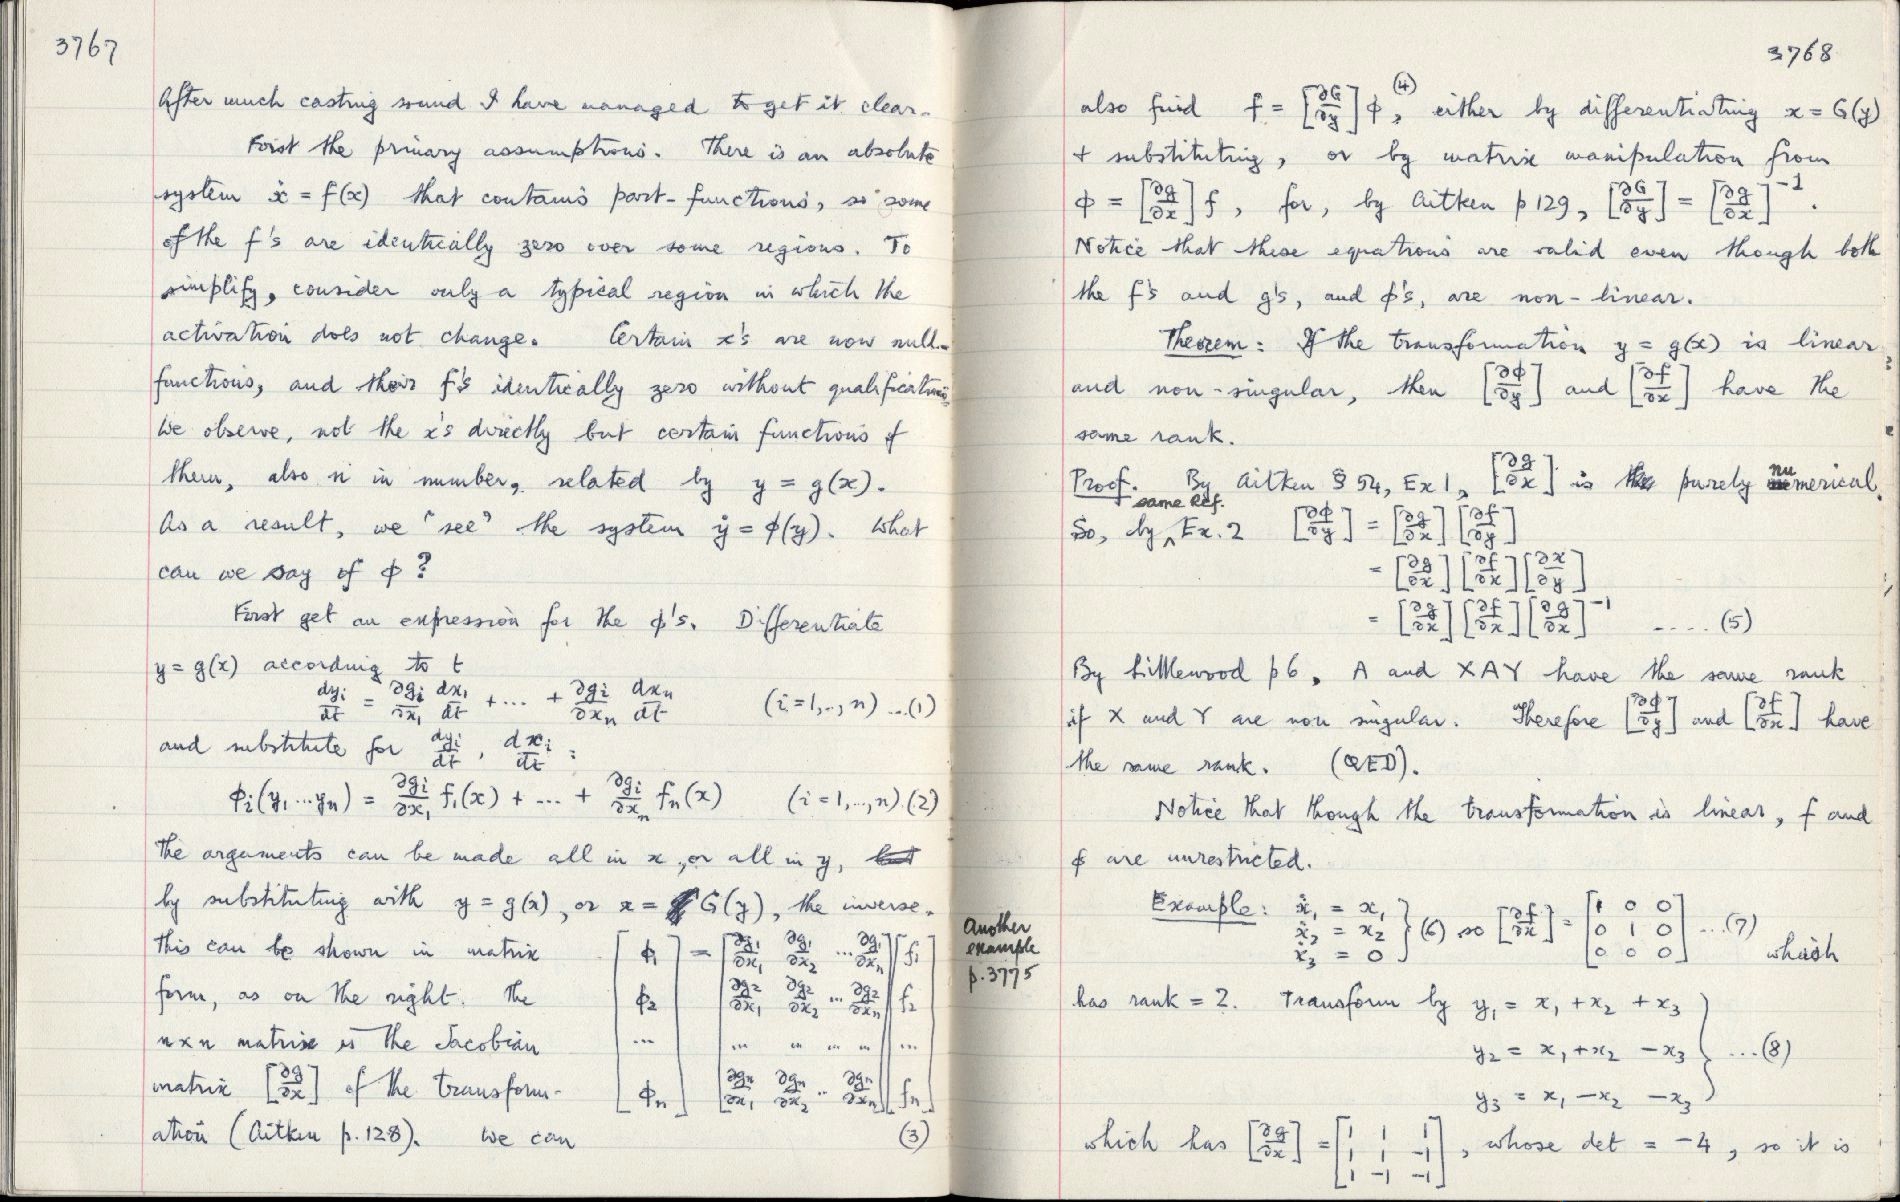 3767
After much casting round I have managed to get it clear.
First the primary assumptions. There is an absolute
system ẋ = f(x) that contains part-functions, so some
of the f's are identically zero over some regions. To
simplify, consider only a typical region in which the
activation does not change. Certain x's are now null-
functions, and their f's identically zero without qualification.
We observe, not the x's directly but certain functions of
them, also n in number, related by y = g(x).
As a result, we "see" the system ẏ = ϕ(y). What
can we say of ϕ?
First get an expression for the ϕ's. Differentiate
y = g(x) according to t
dyi/dt = ∂gi/∂x1 dx1/dt + ... + ∂gi/∂xn dxn/dt (i = 1, .., n) ...(1)
and substitute for dyi/dt, dxi/dt :
ϕi(y1 ... yn) = ∂gi/∂x1 f1(x) + ... + ∂gi/∂xn fn(x) (i = 1, .., n).(2)
The arguments can be made all in x, or all in y,
by substituting with y = g(x), or x = G(y), the inverse.
This can be shown in matrix
form, as on the right. The
n×n matrix is the Jacobian
matrix [∂g/∂x] of the transform-
ation (Aitken p.128). We can
[ϕ1] = [∂g1/∂x1 ∂g1/∂x2 ... ∂g1/∂xn] [f1]
[ϕ2] [∂g2/∂x1 ∂g2/∂x2 ... ∂g2/∂xn] [f2]
... ... ... ... ... ...
[ϕn] [∂gn/∂x1 ∂gn/∂x2 .. ∂gn/∂xn] [fn]
(3)
3768
also find f = [∂G/∂y] ϕ, (4) either by differentiating x = G(y)
+ substituting, or by matrix manipulation from
ϕ = [∂g/∂x] f, for, by Aitken p 129, [∂G/∂y] = [∂g/∂x]⁻¹.
Notice that these equations are valid even though both
the f's and g's, and ϕ's, are non-linear.
Theorem: If the transformation y = g(x) is linear
and non-singular, then [∂ϕ/∂y] and [∂f/∂x] have the
same rank.
Proof. By Aitken § 54, Ex 1, [∂g/∂x] is purely numerical.
So, by same Ref. Ex. 2 [∂ϕ/∂y] = [∂g/∂x] [∂f/∂y]
= [∂g/∂x] [∂f/∂x] [∂x/∂y]
= [∂g/∂x] [∂f/∂x] [∂g/∂x]⁻¹ ..... (5)
By Littlewood p 6, A and XAY have the same rank
if X and Y are non singular. Therefore [∂ϕ/∂y] and [∂f/∂x] have
the same rank. (QED).
Notice that though the transformation is linear, f and
ϕ are unrestricted.
Another
example
p.3775
Example: ẋ1 = x1
ẋ2 = x2 } (6) so [∂f/∂x] = [1 0 0 / 0 1 0 / 0 0 0] ...(7)
ẋ3 = 0 which
has rank = 2. Transform by y1 = x1 + x2 + x3
y2 = x1 + x2 - x3 } ...(8)
y3 = x1 - x2 - x3
which has [∂g/∂x] = [1 1 1 / 1 1 -1 / 1 -1 -1], whose det = -4, so it is